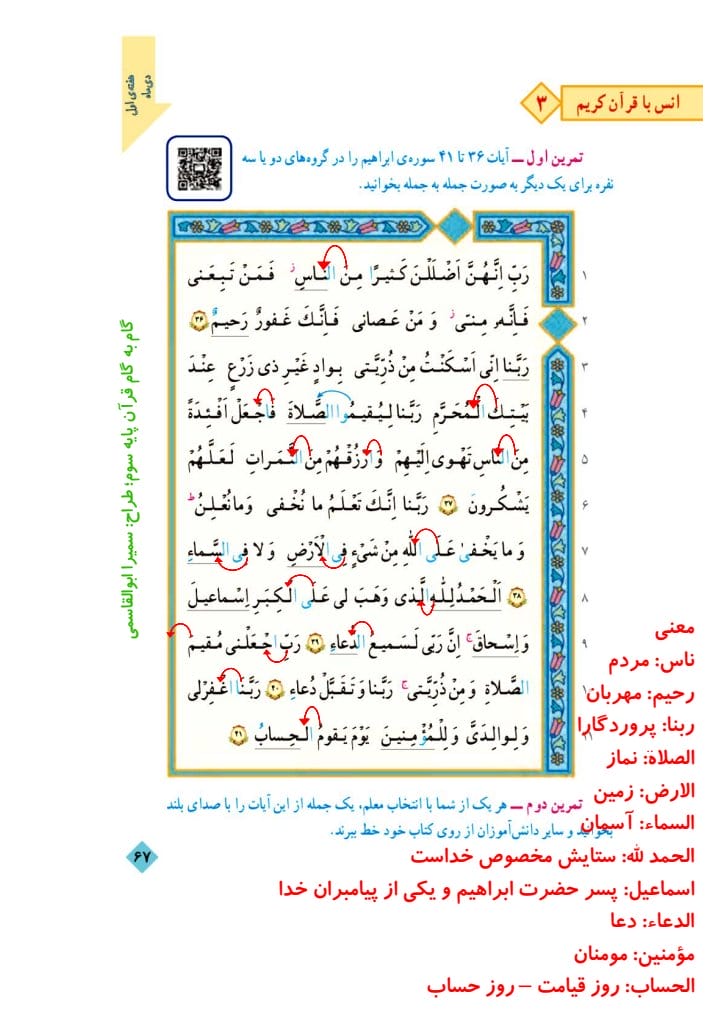 هفته‌ی اول
دی‌ماه
انس با قرآن کریم
۳
تمرین اول ــ آیات ۳۶ تا ۴۱ سوره‌ی ابراهیم را در گروه‌های دو یا سه
نفره برای یک دیگر به صورت جمله به جمله بخوانید.
۱ رَبِّ اِنَّهُنَّ اَضْلَلْنَ کَثیرًا مِنَ النّاسِ ز فَمَنْ تَبِعَنی
۲ فَاِنَّهُ مِنّی ز وَ مَنْ عَصانی فَاِنَّکَ غَفورٌ رَحیمٌ ۳۶
۳ رَبَّنا اِنّی اَسْکَنْتُ مِنْ ذُرِّیَّتی بِوادٍ غَیْرِ ذی زَرْعٍ عِنْدَ
۴ بَیْتِکَ الْمُحَرَّمِ رَبَّنا لِیُقیمُوا الصَّلاةَ فَاجْعَلْ اَفْئِدَةً
۵ مِنَ النّاسِ تَهْوی اِلَیْهِمْ وَارْزُقْهُمْ مِنَ الثَّمَراتِ لَعَلَّهُمْ
۶ یَشْکُرونَ ۳۷ رَبَّنا اِنَّکَ تَعْلَمُ ما نُخْفی وَ مانُعْلِنُ ط
۷ وَ ما یَخْفیٰ عَلَی اللّٰهِ مِنْ شَیْءٍ فِی الْاَرْضِ وَ لا فِی السَّماءِ
۸ ۳۸ اَلْحَمْدُ لِلّٰهِ الَّذی وَهَبَ لی عَلَی الْکِبَرِ اِسْماعیلَ
۹ وَ اِسْحاقَ ج اِنَّ رَبّی لَسَمیعُ الدُّعاءِ ۳۹ رَبِّ اجْعَلْنی مُقیمَ
الصَّلاةِ وَ مِنْ ذُرِّیَّتی ج رَبَّنا وَ تَقَبَّلْ دُعاءِ ۴۰ رَبَّنَا اغْفِرْلی
وَ لِوالِدَیَّ وَ لِلْمُؤْمِنینَ یَوْمَ یَقومُ الْحِسابُ ۴۱
گام به گام قرآن پایه سوم؛ طراح: سمیرا ابوالقاسمی
معنی
ناس: مردم
رحیم: مهربان
ربنا: پروردگارا
الصلاة: نماز
الارض: زمین
السماء: آسمان
الحمد لله: ستایش مخصوص خداست
اسماعیل: پسر حضرت ابراهیم و یکی از پیامبران خدا
الدعاء: دعا
مؤمنین: مومنان
الحساب: روز قیامت – روز حساب
تمرین دوم ــ هر یک از شما با انتخاب معلم، یک جمله از این آیات را با صدای بلند
بخوانید و سایر دانش‌آموزان از روی کتاب خود خط ببرند.
۶۷